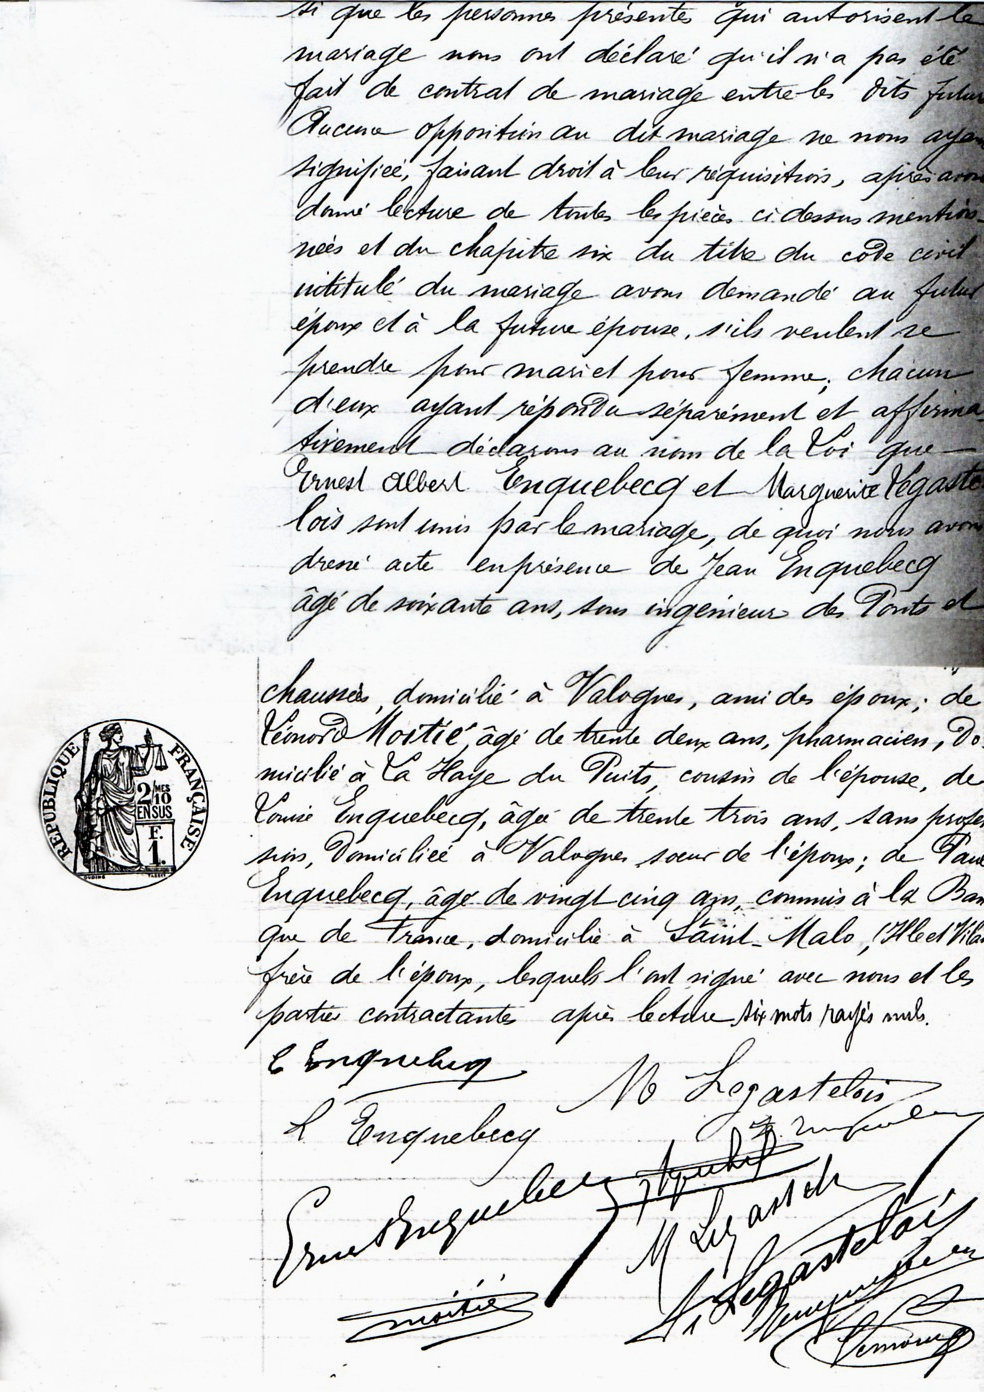 si que les personnes présentes qui autorisent le
mariage nous ont déclaré qu'il n'a pas été
fait de contrat de mariage entre les dits futur
Aucune opposition au dit mariage ne nous ayan
signifiée, faisant droit à leur réquisition, après avoir
donné lecture de toutes les pièces ci dessus mention-
nées et du chapitre six du titre du code civil
intitulé du mariage avons demandé au futur
époux et à la future épouse, s'ils veulent se
prendre pour mari et pour femme; chacun
d'eux ayant répondu séparément et affirma-
tivement déclarons au nom de la Loi que
Ernest Albert Enquebecq et Marguerite Legaste
lois sont unis par le mariage, de quoi nous avons
dressé acte en présence de Jean Enquebecq
âgé de soixante ans, sous ingénieur des Ponts et
chaussées, domicilié à Valognes, ami des époux; de
Léonord Moitié, âgé de trente deux ans, pharmacien, Do-
micilié à La Haye du Puits, cousin de l'épouse, de
Louise Enquebecq, âgée de trente trois ans, sans profes
sion, Domiciliée à Valognes sœur de l'époux; de Paul
Enquebecq, âgé de vingt cinq ans, commis à la Ban
que de France, domicilié à Saint-Malo, (Ille et Vilai
frère de l'époux, lesquels l'ont signé avec nous et les
parties contractantes après lecture six mots rayés nuls.
RÉPUBLIQUE FRANÇAISE
2/MES
10
EN SUS
F.
1.
E Enquebecq
M Legastelois
L Enquebecq
Ernest Enquebecq
M Legastel
A. Legastelois
moitié